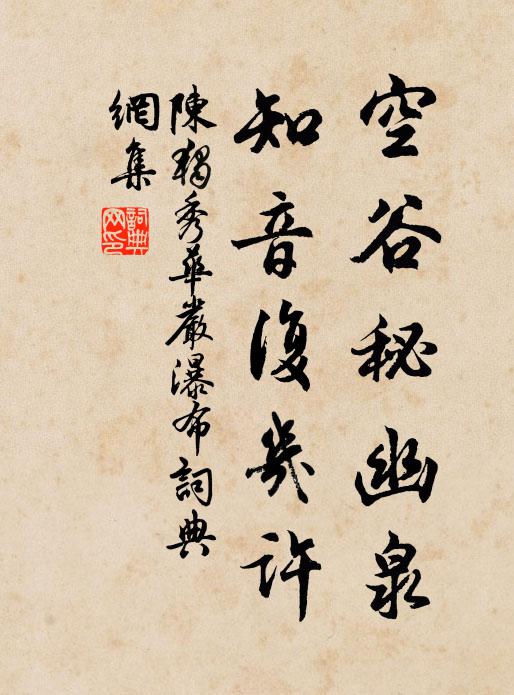 空谷秘幽泉
知音復幾許
陳獨秀華嚴瀑布詞典
網集
詞典
网印